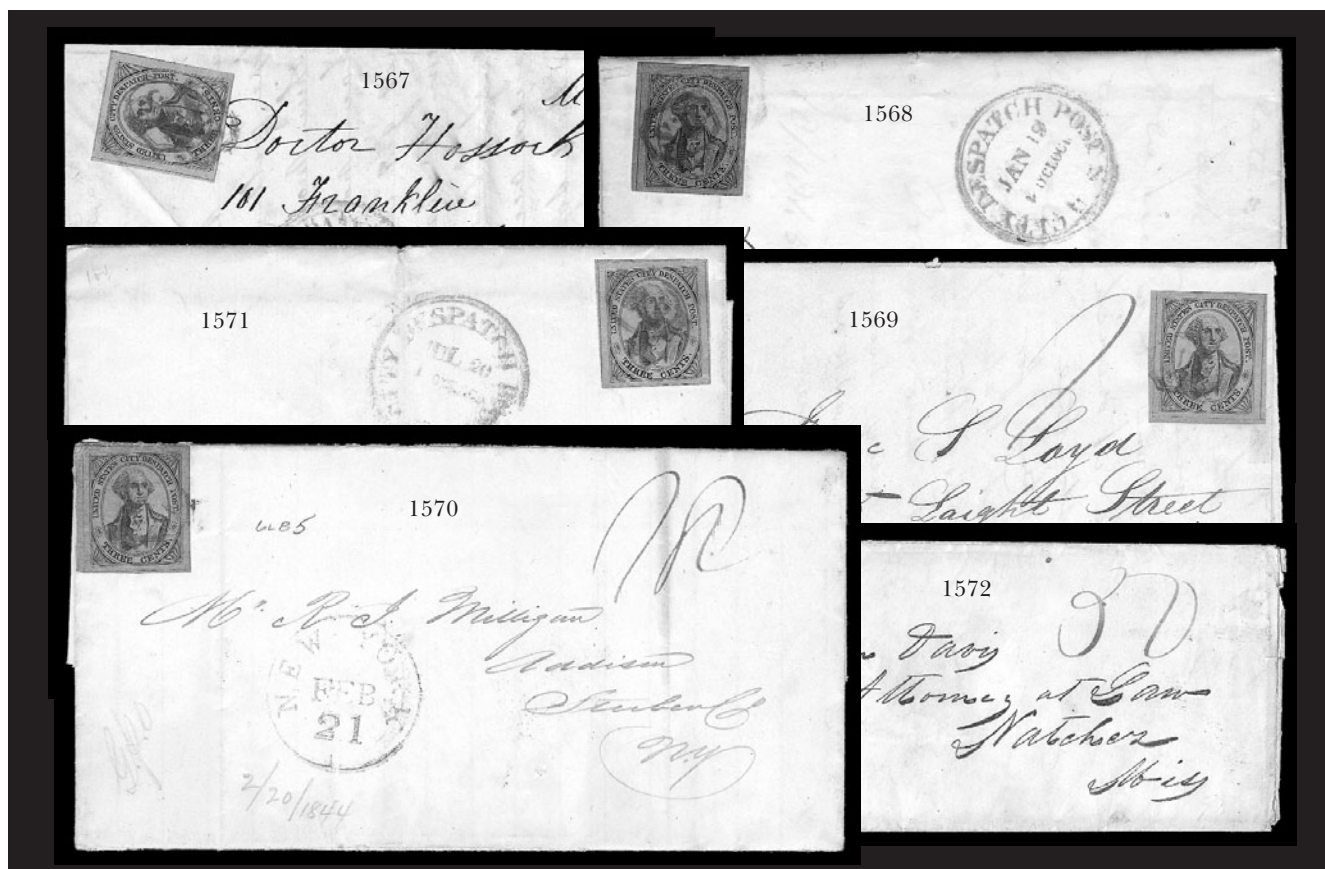 1567
UNITED STATES CITY DESPATCH POST.
THREE CENTS.
Doctor Hossock
101 Franklin
1568
UNITED STATES CITY DESPATCH POST.
THREE CENTS.
CITY DESPATCH POST
U.S.
JAN 19
O'CLOCK
1571
CITY DESPATCH
JUL 20
UNITED STATES CITY DESPATCH POST.
THREE CENTS.
1569
UNITED STATES CITY DESPATCH POST.
THREE CENTS.
S Loyd
Laight Street
1570
UNITED STATES CITY DESPATCH POST.
THREE CENTS.
6LB5
Mr. R. J. Milligan
Addison
Steuben Co
N.Y.
NEW YORK
FEB
21
2/20/1844
1572
Davis
Attorney at Law
Natchez
Miss